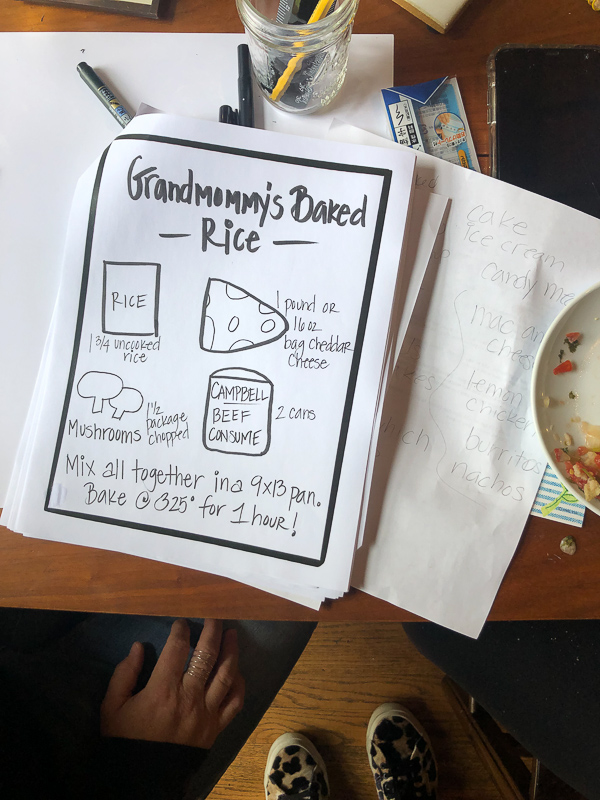 Grandmommy's Baked
— Rice —
RICE
1 3/4 uncooked
rice
1 pound or
16 oz
bag cheddar
cheese
Mushrooms
1 1/2
package
chopped
CAMPBELL
BEEF
CONSUME
2 cans
Mix all together in a 9x13 pan.
Bake @ 325° for 1 hour!
cake
ice cream
candy ma
mac an
chees
lemon
chicken
burritos
nachos